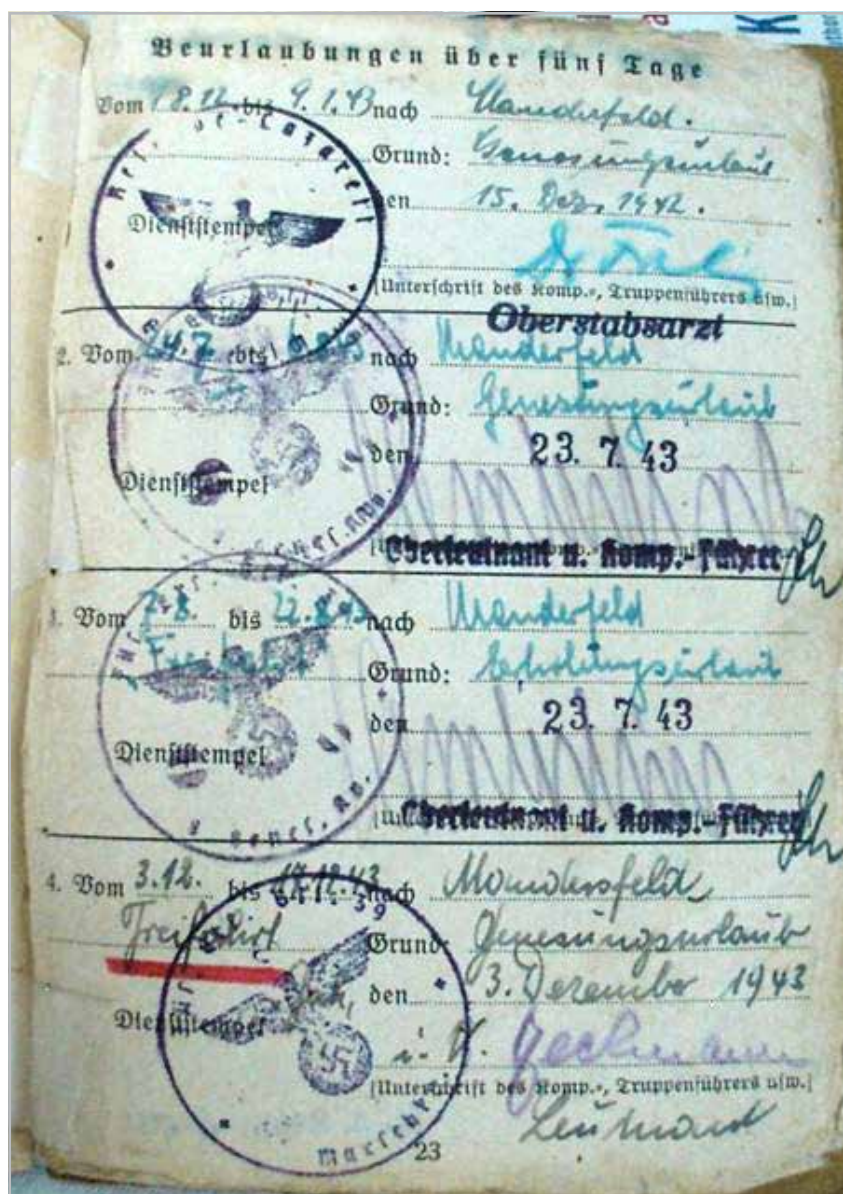 Beurlaubungen über fünf Tage
Vom 18.12. bis 9.1.43 nach Manderfeld.
Grund: Genesungsurlaub
den 15. Dez. 1942.
Dienststempel
[Unterschrift des Komp.-, Truppenführers usw.]
Oberstabsarzt
2. Vom 24.7. bis 6.8.43 nach Manderfeld
Grund: Genesungsurlaub
den 23. 7. 43
Dienststempel
Oberleutnant u. Komp.-Führer
3. Vom 7.8. bis 22.8.43 nach Manderfeld
Grund: Erholungsurlaub
den 23. 7. 43
Dienststempel
Oberleutnant u. Komp.-Führer
4. Vom 3.12. bis 17.12.43 nach Mandersfeld
Freifahrt
Grund: Genesungsurlaub
den 3. Dezember 1943
Dienststempel
[Unterschrift des Komp.-, Truppenführers usw.]
Leutnant
23